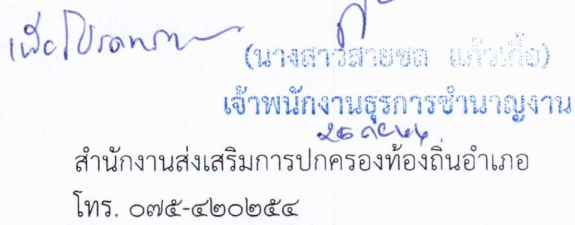 เพื่อโปรดทราบ
(นางสาวสายชล แก้วเกื้อ)
เจ้าพนักงานธุรการชำนาญงาน
สำนักงานส่งเสริมการปกครองท้องถิ่นอำเภอ
โทร. ๐๗๕-๔๒๐๒๕๔